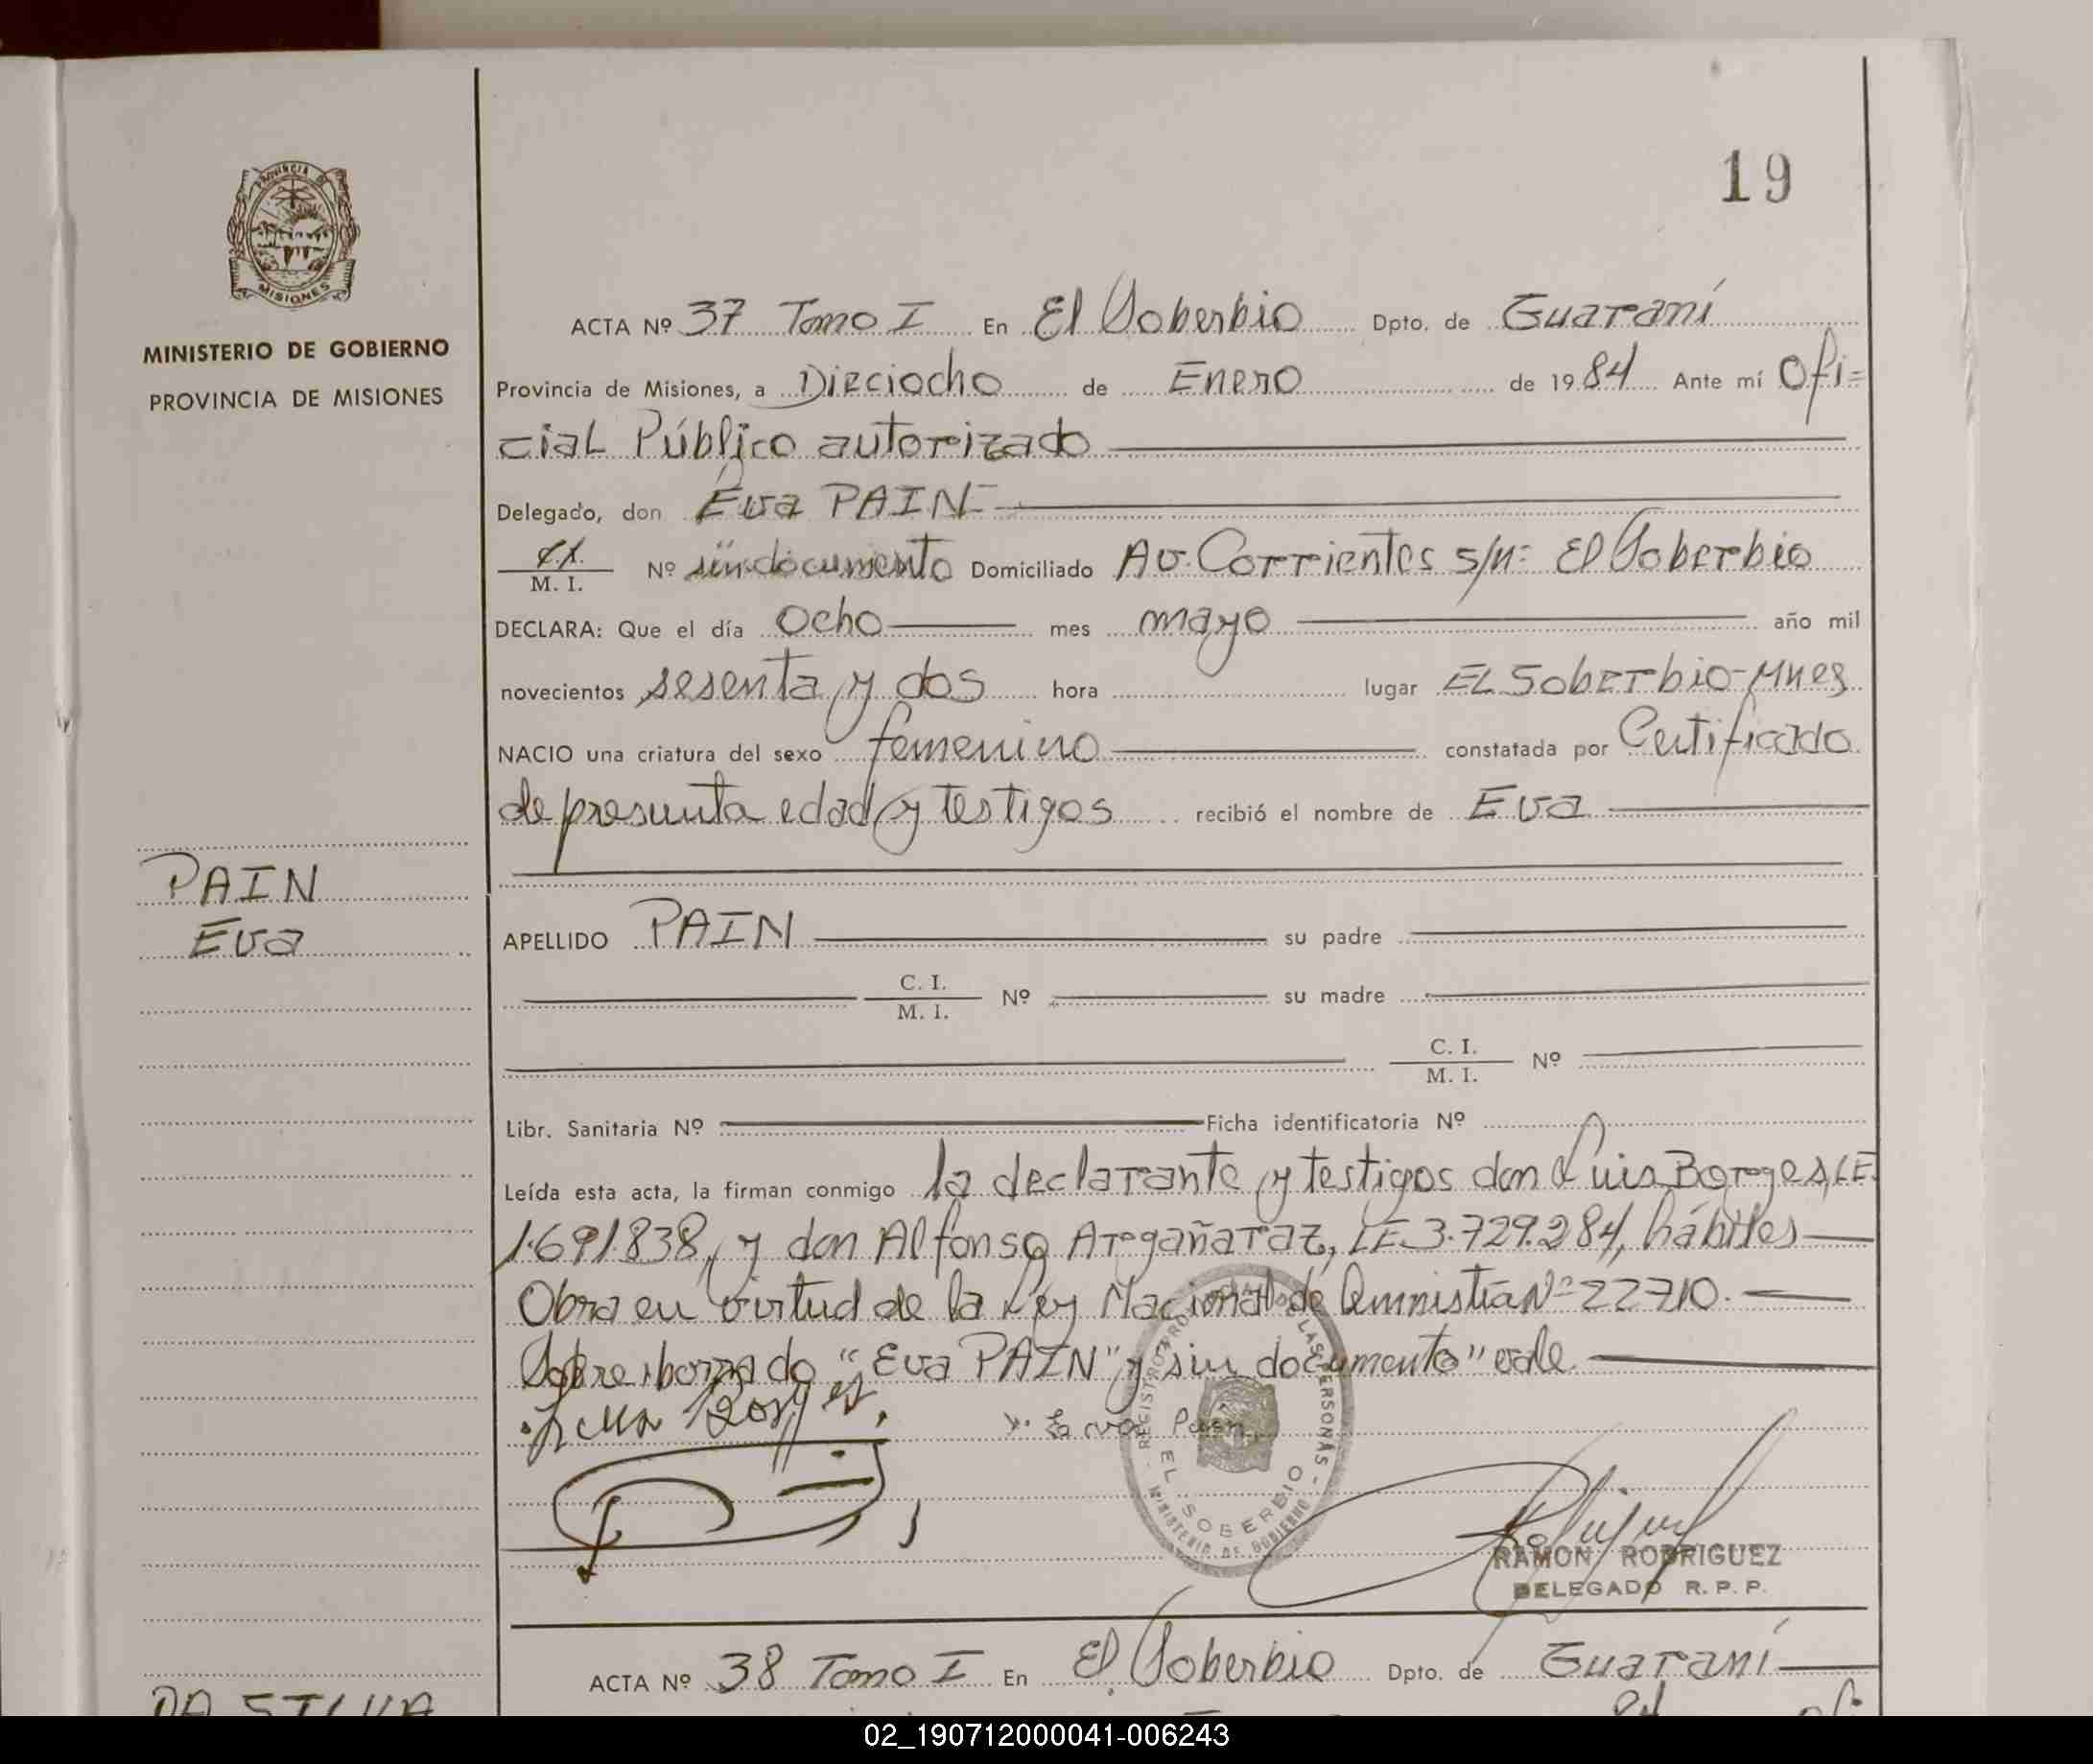 19
PROVINCIA DE
MISIONES
MINISTERIO DE GOBIERNO
PROVINCIA DE MISIONES
ACTA Nº 37 Tomo I En El Soberbio Dpto. de Guaraní
Provincia de Misiones, a Dieciocho de Enero de 1984 Ante mí Ofi=
cial Público autorizado
Delegado, don Eva PAIN
C.I. M. I. Nº sin documento Domiciliado Av. Corrientes s/nº El Soberbio
DECLARA: Que el día Ocho mes mayo año mil
novecientos sesenta y dos hora lugar El Soberbio-Mnes
NACIO una criatura del sexo femenino constatada por Certificado
de presunta edad y testigos recibió el nombre de Eva
PAIN
Eva
APELLIDO PAIN su padre
C. I. M. I. Nº su madre
C. I. M. I. Nº
Libr. Sanitaria Nº Ficha identificatoria Nº
Leída esta acta, la firman conmigo la declarante y testigos don Luis Borges, LE.
1.691.838, y don Alfonso Argañaraz, LE.3.729.284, hábiles
Obra en virtud de la Ley Nacional de Amnistía Nº 22710.
Sobre borrado "Eva PAIN" y sin documento" vale.
Luis Borges
Eva Pain
REGISTRO PROV. DE LAS PERSONAS
EL SOBERBIO
MINISTERIO DE GOBIERNO
RAMON RODRIGUEZ
DELEGADO R. P. P.
ACTA Nº 38 Tomo I En El Soberbio Dpto. de Guaraní
DA SILVA
02_190712000041-006243